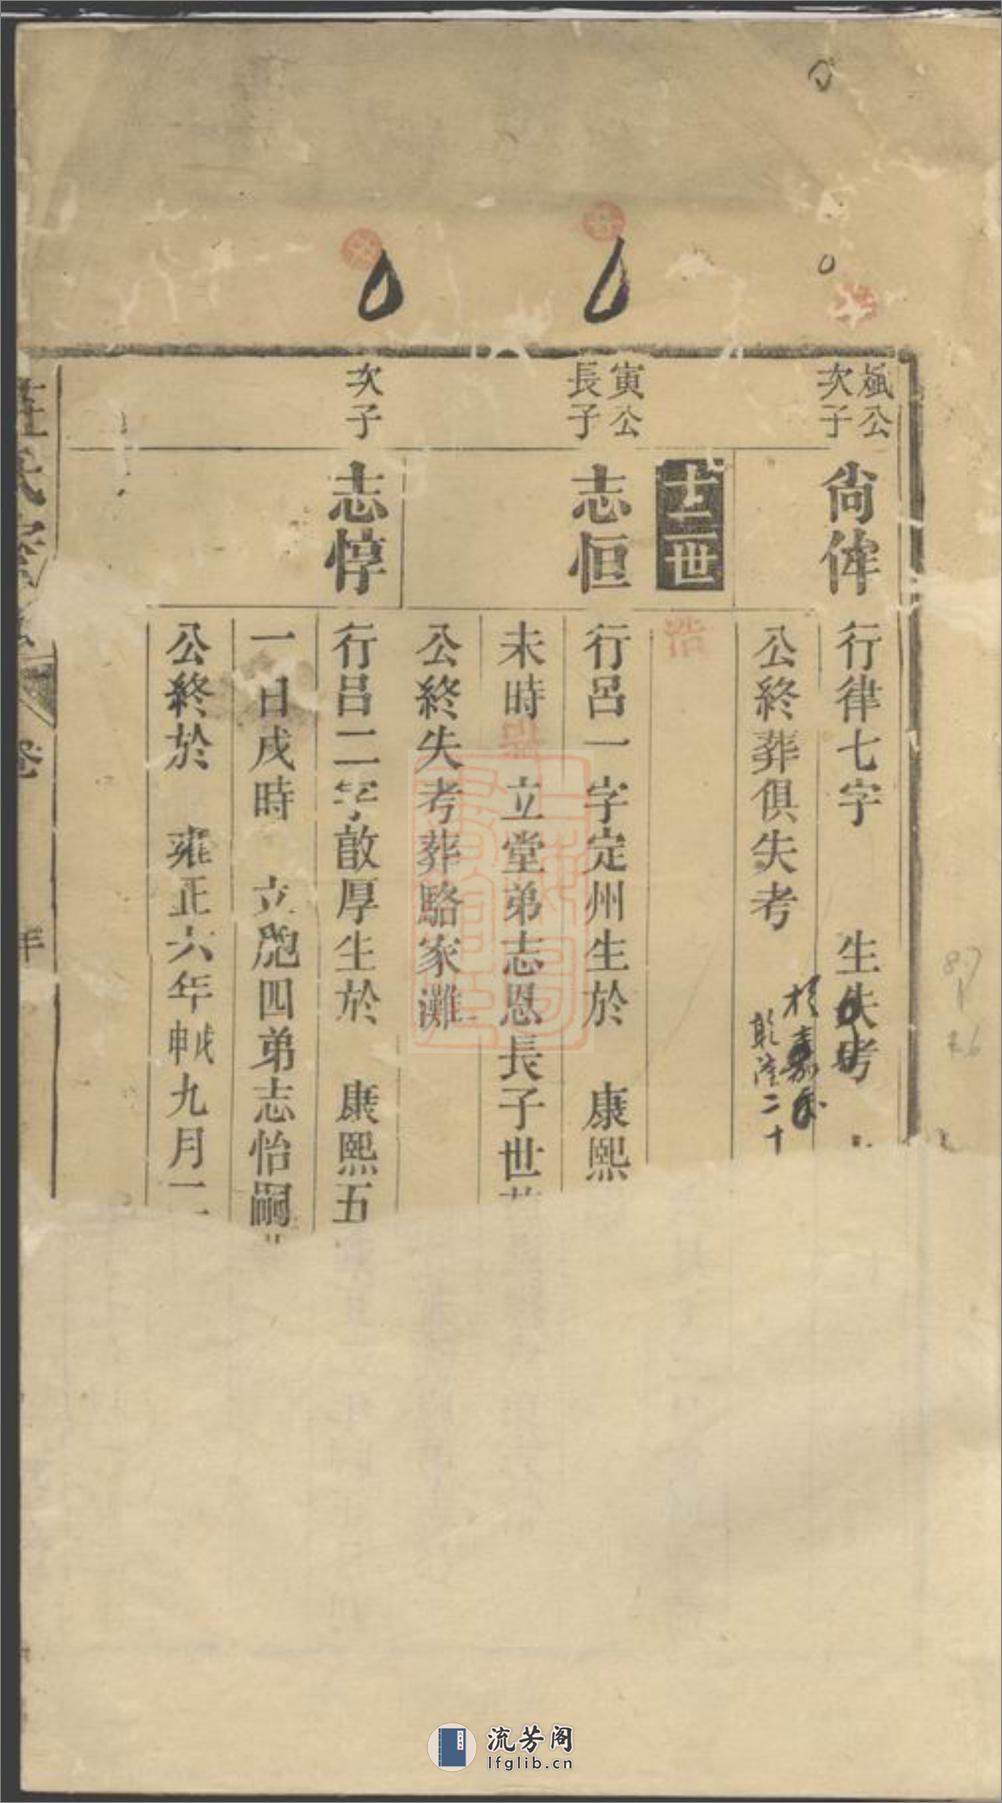 公
次子
尙侔
行律七字 生失考
公終葬俱失考
乾隆二十
十二世
寅公
長子
志恒
行呂一字定州生於 康熙
未時 立堂弟志恩長子世
公終失考葬駱家灘
次子
志惇
行呂二字敵厚生於 康熙五
一日戌時 立胞四弟志怡嗣
公終於 雍正六年戊申九月二
氏
卷
年
流芳阁
lfglib.cn